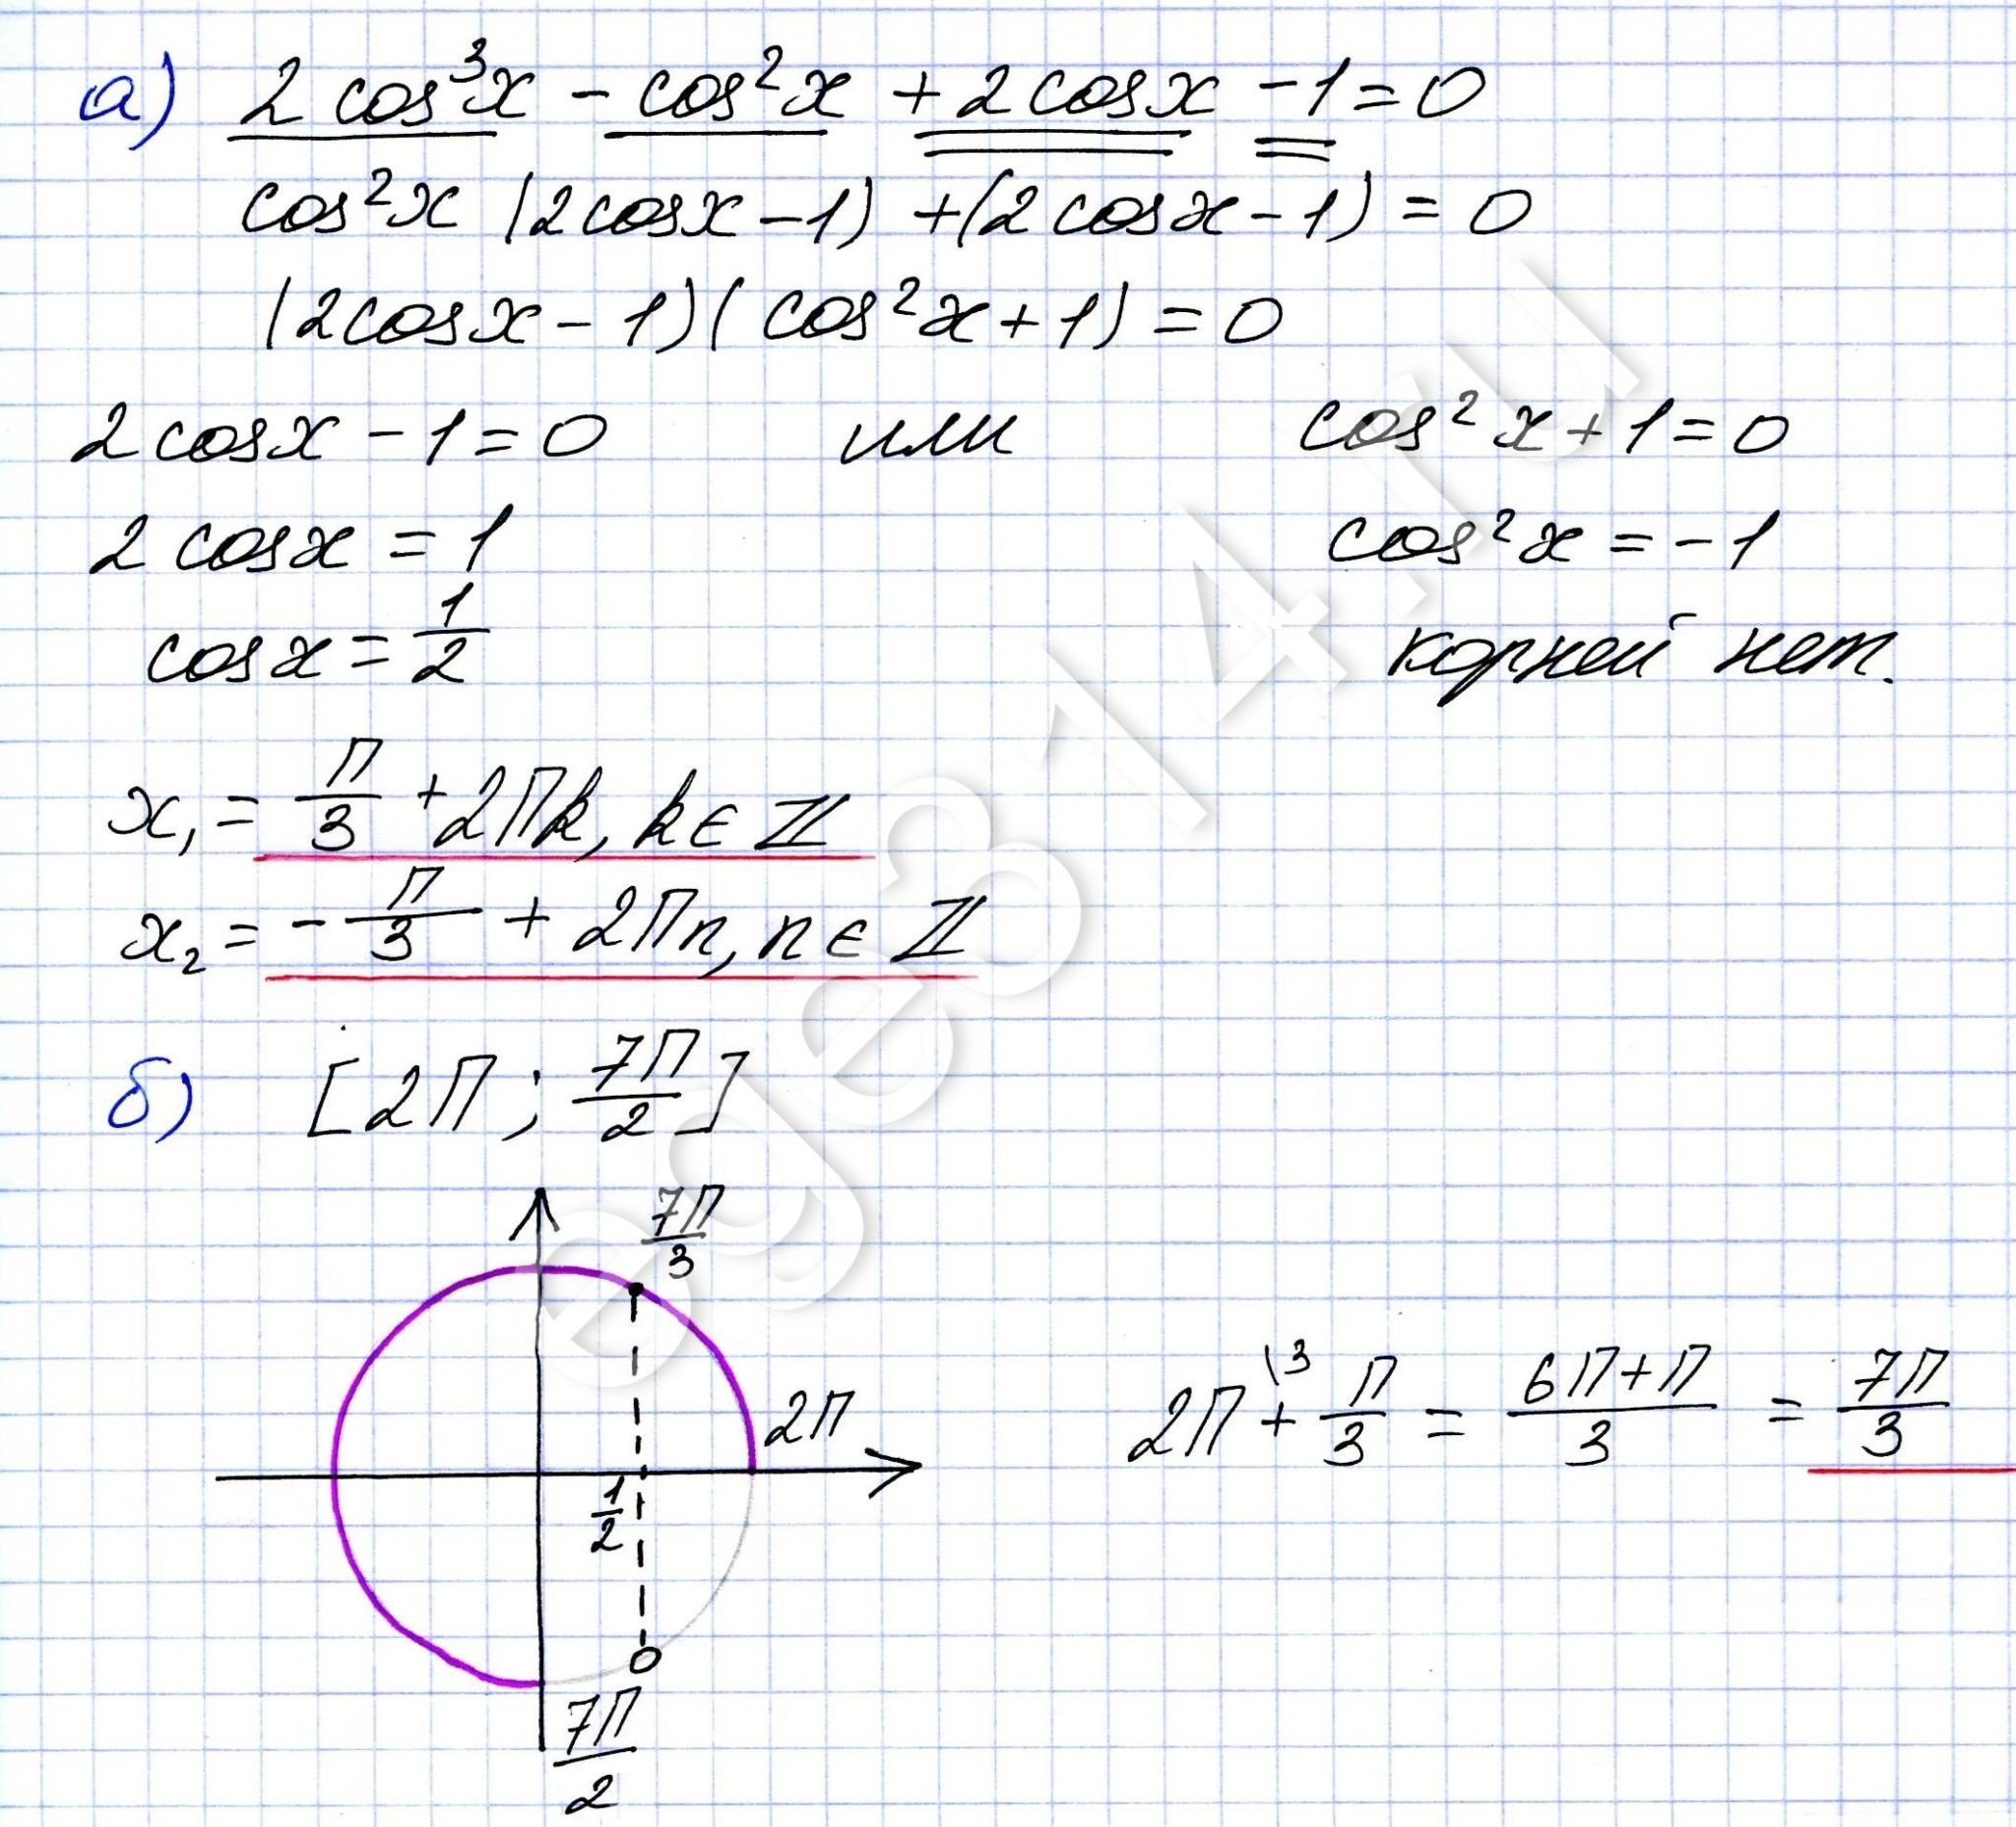 а) 2 cos³x - cos²x + 2 cosx - 1 = 0
cos²x (2cosx - 1) + (2 cosx - 1) = 0
(2cosx - 1)(cos²x + 1) = 0
2 cosx - 1 = 0 или cos²x + 1 = 0
2 cosx = 1 cos²x = -1
cosx = 1/2 корней нет.
x₁ = П/3 + 2Пk, k ∈ ℤ
x₂ = -П/3 + 2Пn, n ∈ ℤ
б) [2П; 7П/2]
7П/3
2П
2П\3 + П/3 = (6П+П)/3 = 7П/3
1/2
7П/2
ege314.ru